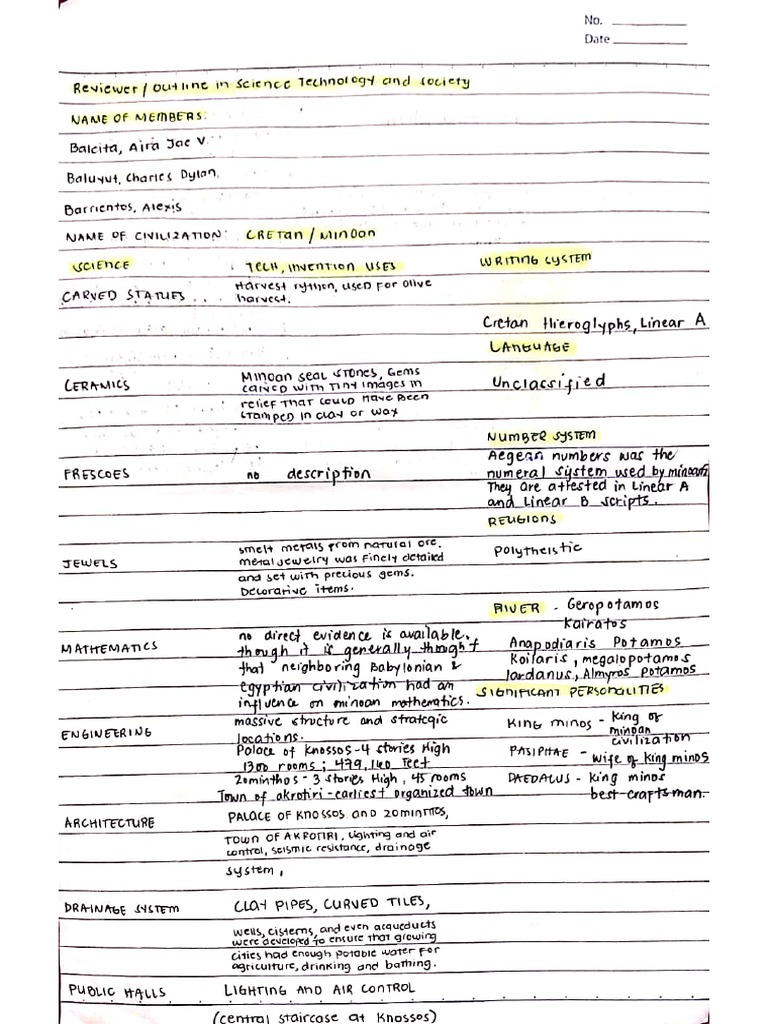 No.
Date
Reviewer / outline in Science Technology and Society
NAME OF MEMBERS:
Balcita, Aira Jae V.
Baluyut, Charles Dylan.
Barrientos, Alexis
NAME OF CIVILIZATION: CRETAN / MINOAN
SCIENCE TECH, INVENTION USES WRITING SYSTEM
CARVED STATUES Harvest rython, used for olive
harvest.
Cretan Hieroglyphs, Linear A
LANGUAGE
CERAMICS Minoan seal stones, Gems Unclassified
carved with tiny images in
relief that could have been
stamped in clay or wax
NUMBER SYSTEM
FRESCOES no description Aegean numbers was the
numeral system used by minoans
They are attested in Linear A
and Linear B scripts.
RELIGIONS
JEWELS smelt metals from natural ore. Polytheistic
metal jewelry was finely detailed
and set with precious gems.
Decorative items.
RIVER - Geropotamos
Kairatos
MATHEMATICS no direct evidence is available, Anapodiaris Potamos
though it is generally thought Koilaris, megalopotamos
that neighboring Babylonian & Iardanus, Almyros potamos
Egyptian civilization had an SIGNIFICANT PERSONALITIES
influence on minoan mathematics.
ENGINEERING massive structure and strategic KING MINOS - King of
locations. minoan
civilization
Palace of Knossos - 4 stories High PASIPHAE - wife of King minos
1300 rooms; 479,160 feet
zominthos - 3 stories High, 45 rooms DAEDALUS - King minos
Town of akrotiri - earliest organized town best craftsman.
ARCHITECTURE PALACE OF KNOSSOS AND ZOMINTHOS,
TOWN OF AKROTIRI, Lighting and air
control, seismic resistance, drainage
system,
DRAINAGE SYSTEM CLAY PIPES, CURVED TILES,
wells, cisterns, and even acqueducts
were developed to ensure that growing
cities had enough potable water for
agriculture, drinking and bathing.
PUBLIC HALLS LIGHTING AND AIR CONTROL
(central staircase at Knossos)